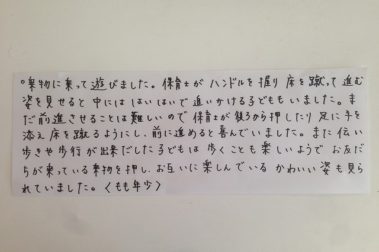 ○乗物に乗って遊びました。保育士がハンドルを握り床を蹴って進む
姿を見せると中にははいはいで追いかける子どももいました。ま
だ前進させることは難しいので保育士が後ろから押したり足に手を
添え床を蹴るようにし、前に進めると喜んでいました。また伝い
歩きや歩行が出来だした子どもは歩くことも楽しいようでお友だ
ちが乗っている乗物を押し、お互いに楽しんでいるかわいい姿も見ら
れていました。〈もも年少〉